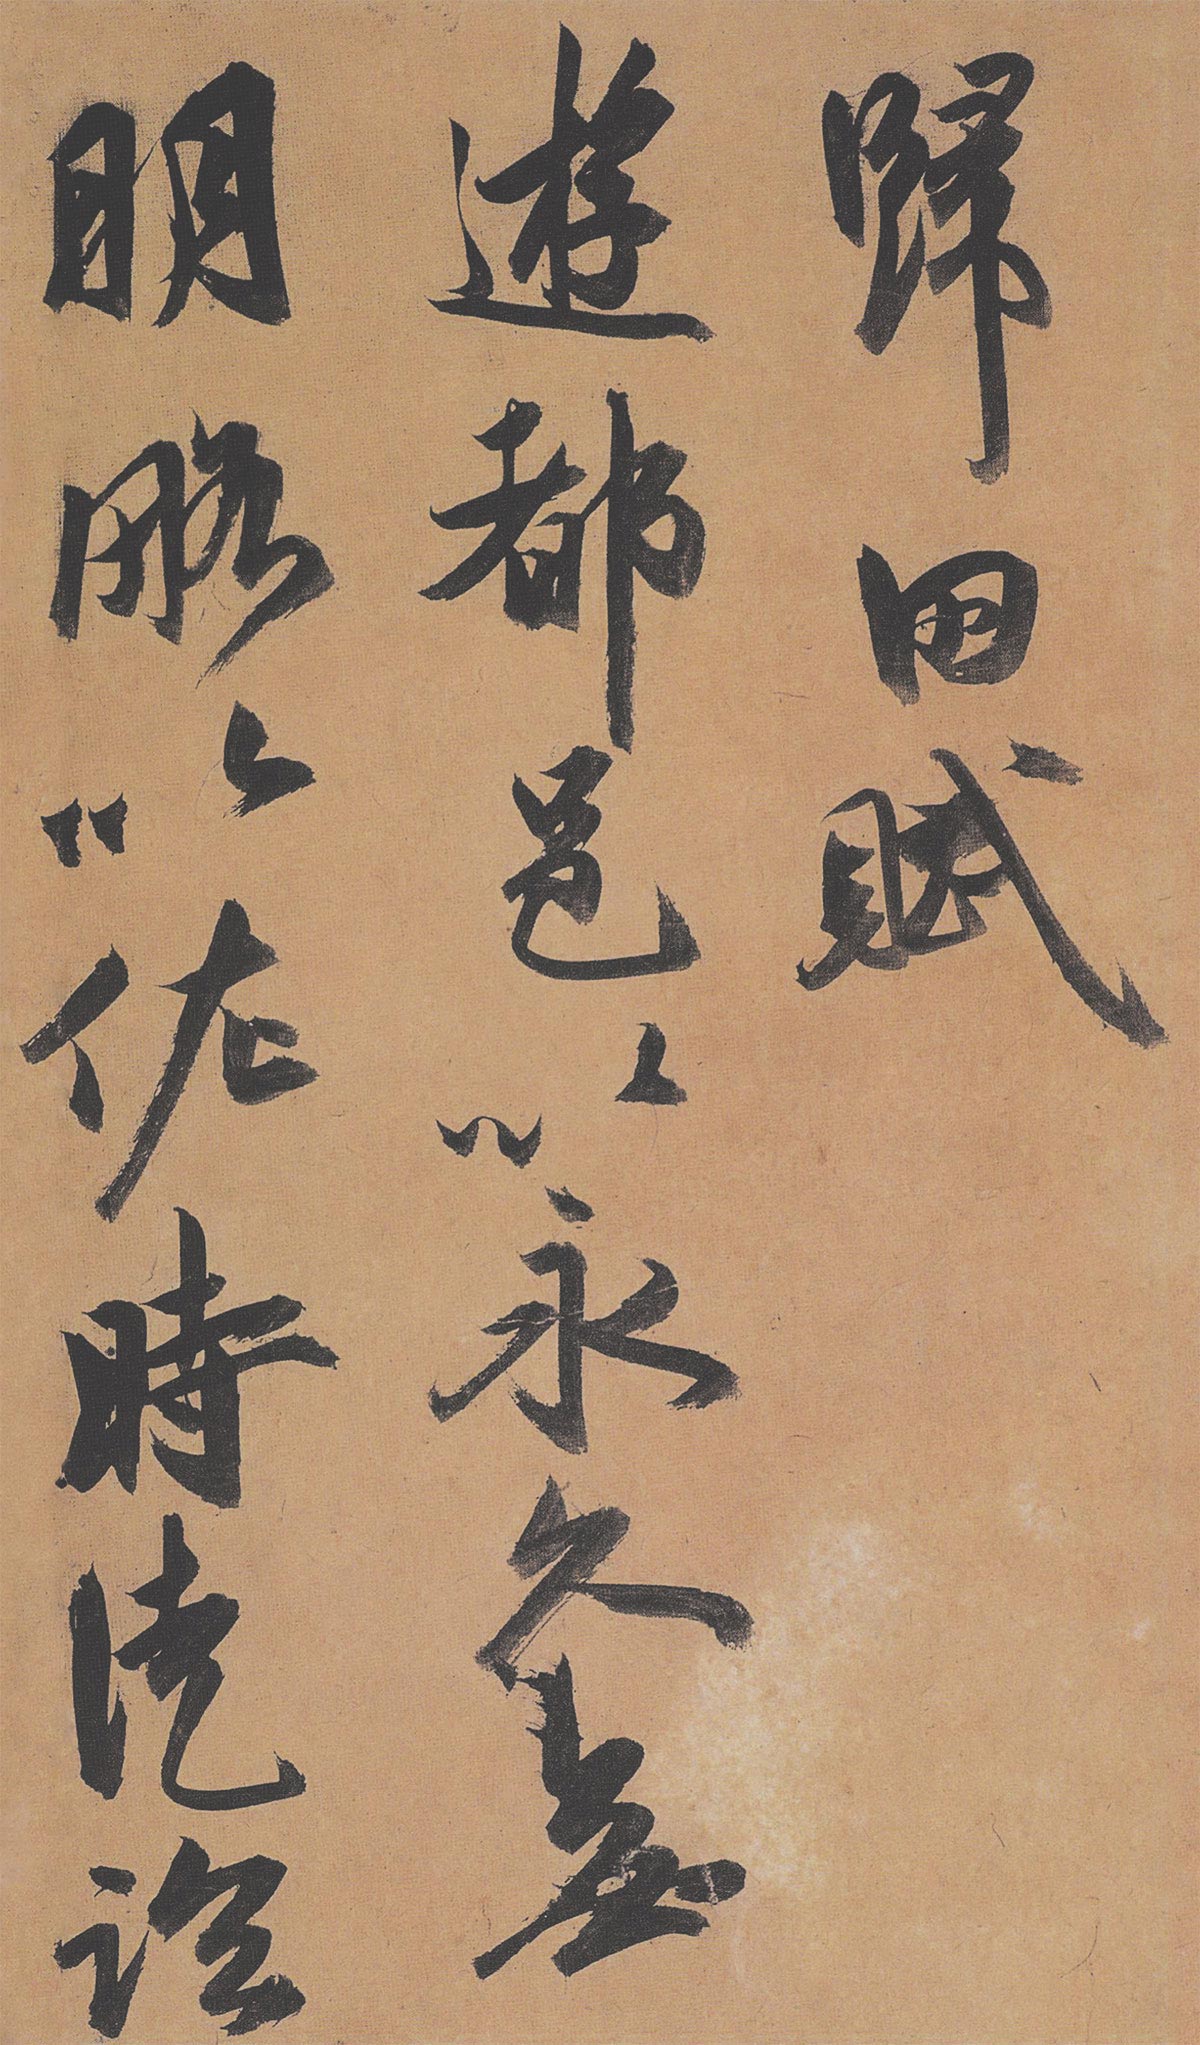 歸田賦
遊都邑以永久無
明略以佐時徒臨